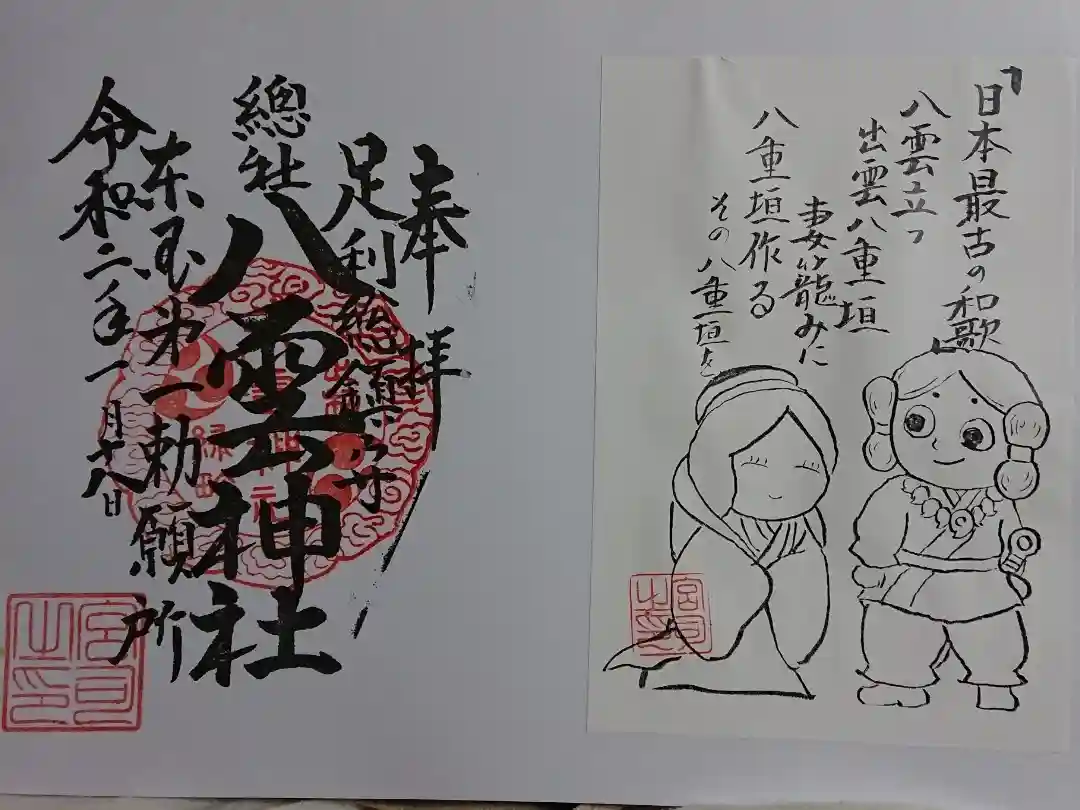 奉拝
足利總鎮守
總社
八雲神社
東国第一勅願所
令和二年一月十八日
宮司之印
「日本最古の和歌」
八雲立つ
出雲八重垣
妻籠みに
八重垣作る
その八重垣を
宮司之印